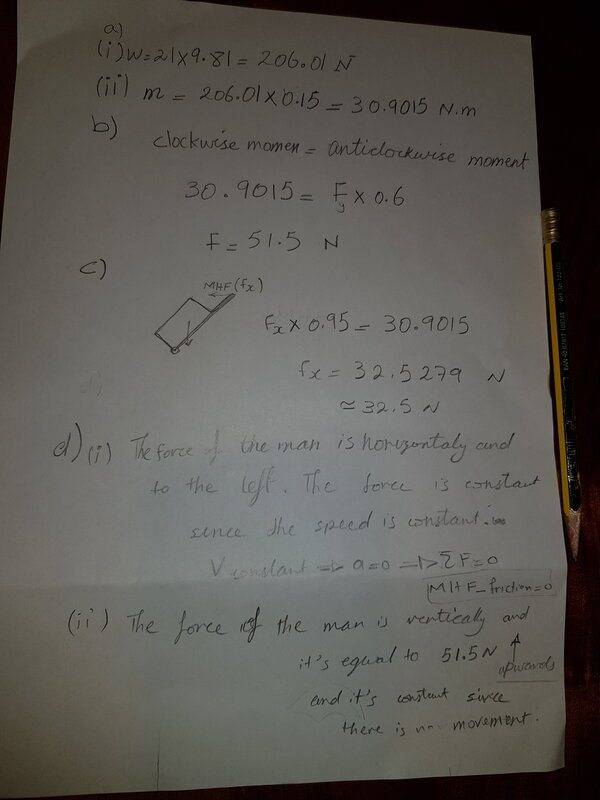 a)
(i) W=21×9.81= 206.01 N
(ii) m = 206.01×0.15 = 30.9015 N.m
b)
clockwise momen = anticlockwise moment
30.9015 = Fy × 0.6
F = 51.5 N
c)
MHF(fx)
fx × 0.95 = 30.9015
fx = 32.5279 N
≈ 32.5 N
d) (i) The force of the man is horizontaly and
to the left. The force is constant
since the speed is constant.
V constant => a=0 => ΣF=0
MHF_friction=0
(ii) The force of the man is vertically and
it's equal to 51.5 N ↑ upwards
and it's constant since
there is no movement.